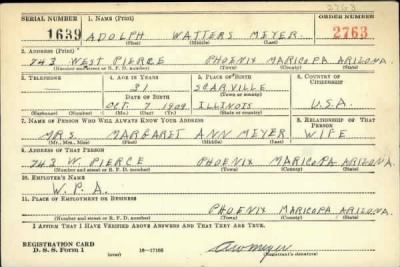 2763
SERIAL NUMBER 1. NAME (Print) ORDER NUMBER
1639 ADOLPH WATTERS MEYER. 2763
(First) (Middle) (Last)
2. ADDRESS (Print)
743 WEST PIERCE PHOENIX MARICOPA ARIZONA.
(Number and street or R. F. D. number) (Town) (County) (State)
3. TELEPHONE 4. AGE IN YEARS 5. PLACE OF BIRTH 6. COUNTRY OF CITIZENSHIP
31 SCARVILLE
DATE OF BIRTH (Town or county)
OCT. 7 1909 ILLINOIS U.S.A.
(Exchange) (Number) (Mo.) (Day) (Yr.) (State or country)
7. NAME OF PERSON WHO WILL ALWAYS KNOW YOUR ADDRESS 8. RELATIONSHIP OF THAT PERSON
MRS. MARGARET ANN MEYER WIFE
(Mr., Mrs., Miss) (First) (Middle) (Last)
9. ADDRESS OF THAT PERSON
743 W. PIERCE PHOENIX MARICOPA ARIZONA.
(Number and street or R. F. D. number) (Town) (County) (State)
10. EMPLOYER'S NAME
W.P.A.
11. PLACE OF EMPLOYMENT OR BUSINESS
PHOENIX MARICOPA ARIZONA.
(Number and street or R. F. D. number) (Town) (County) (State)
I AFFIRM THAT I HAVE VERIFIED ABOVE ANSWERS AND THAT THEY ARE TRUE.
REGISTRATION CARD
D. S. S. Form 1 (over) 16-17105 AWMeyer
(Registrant's signature)